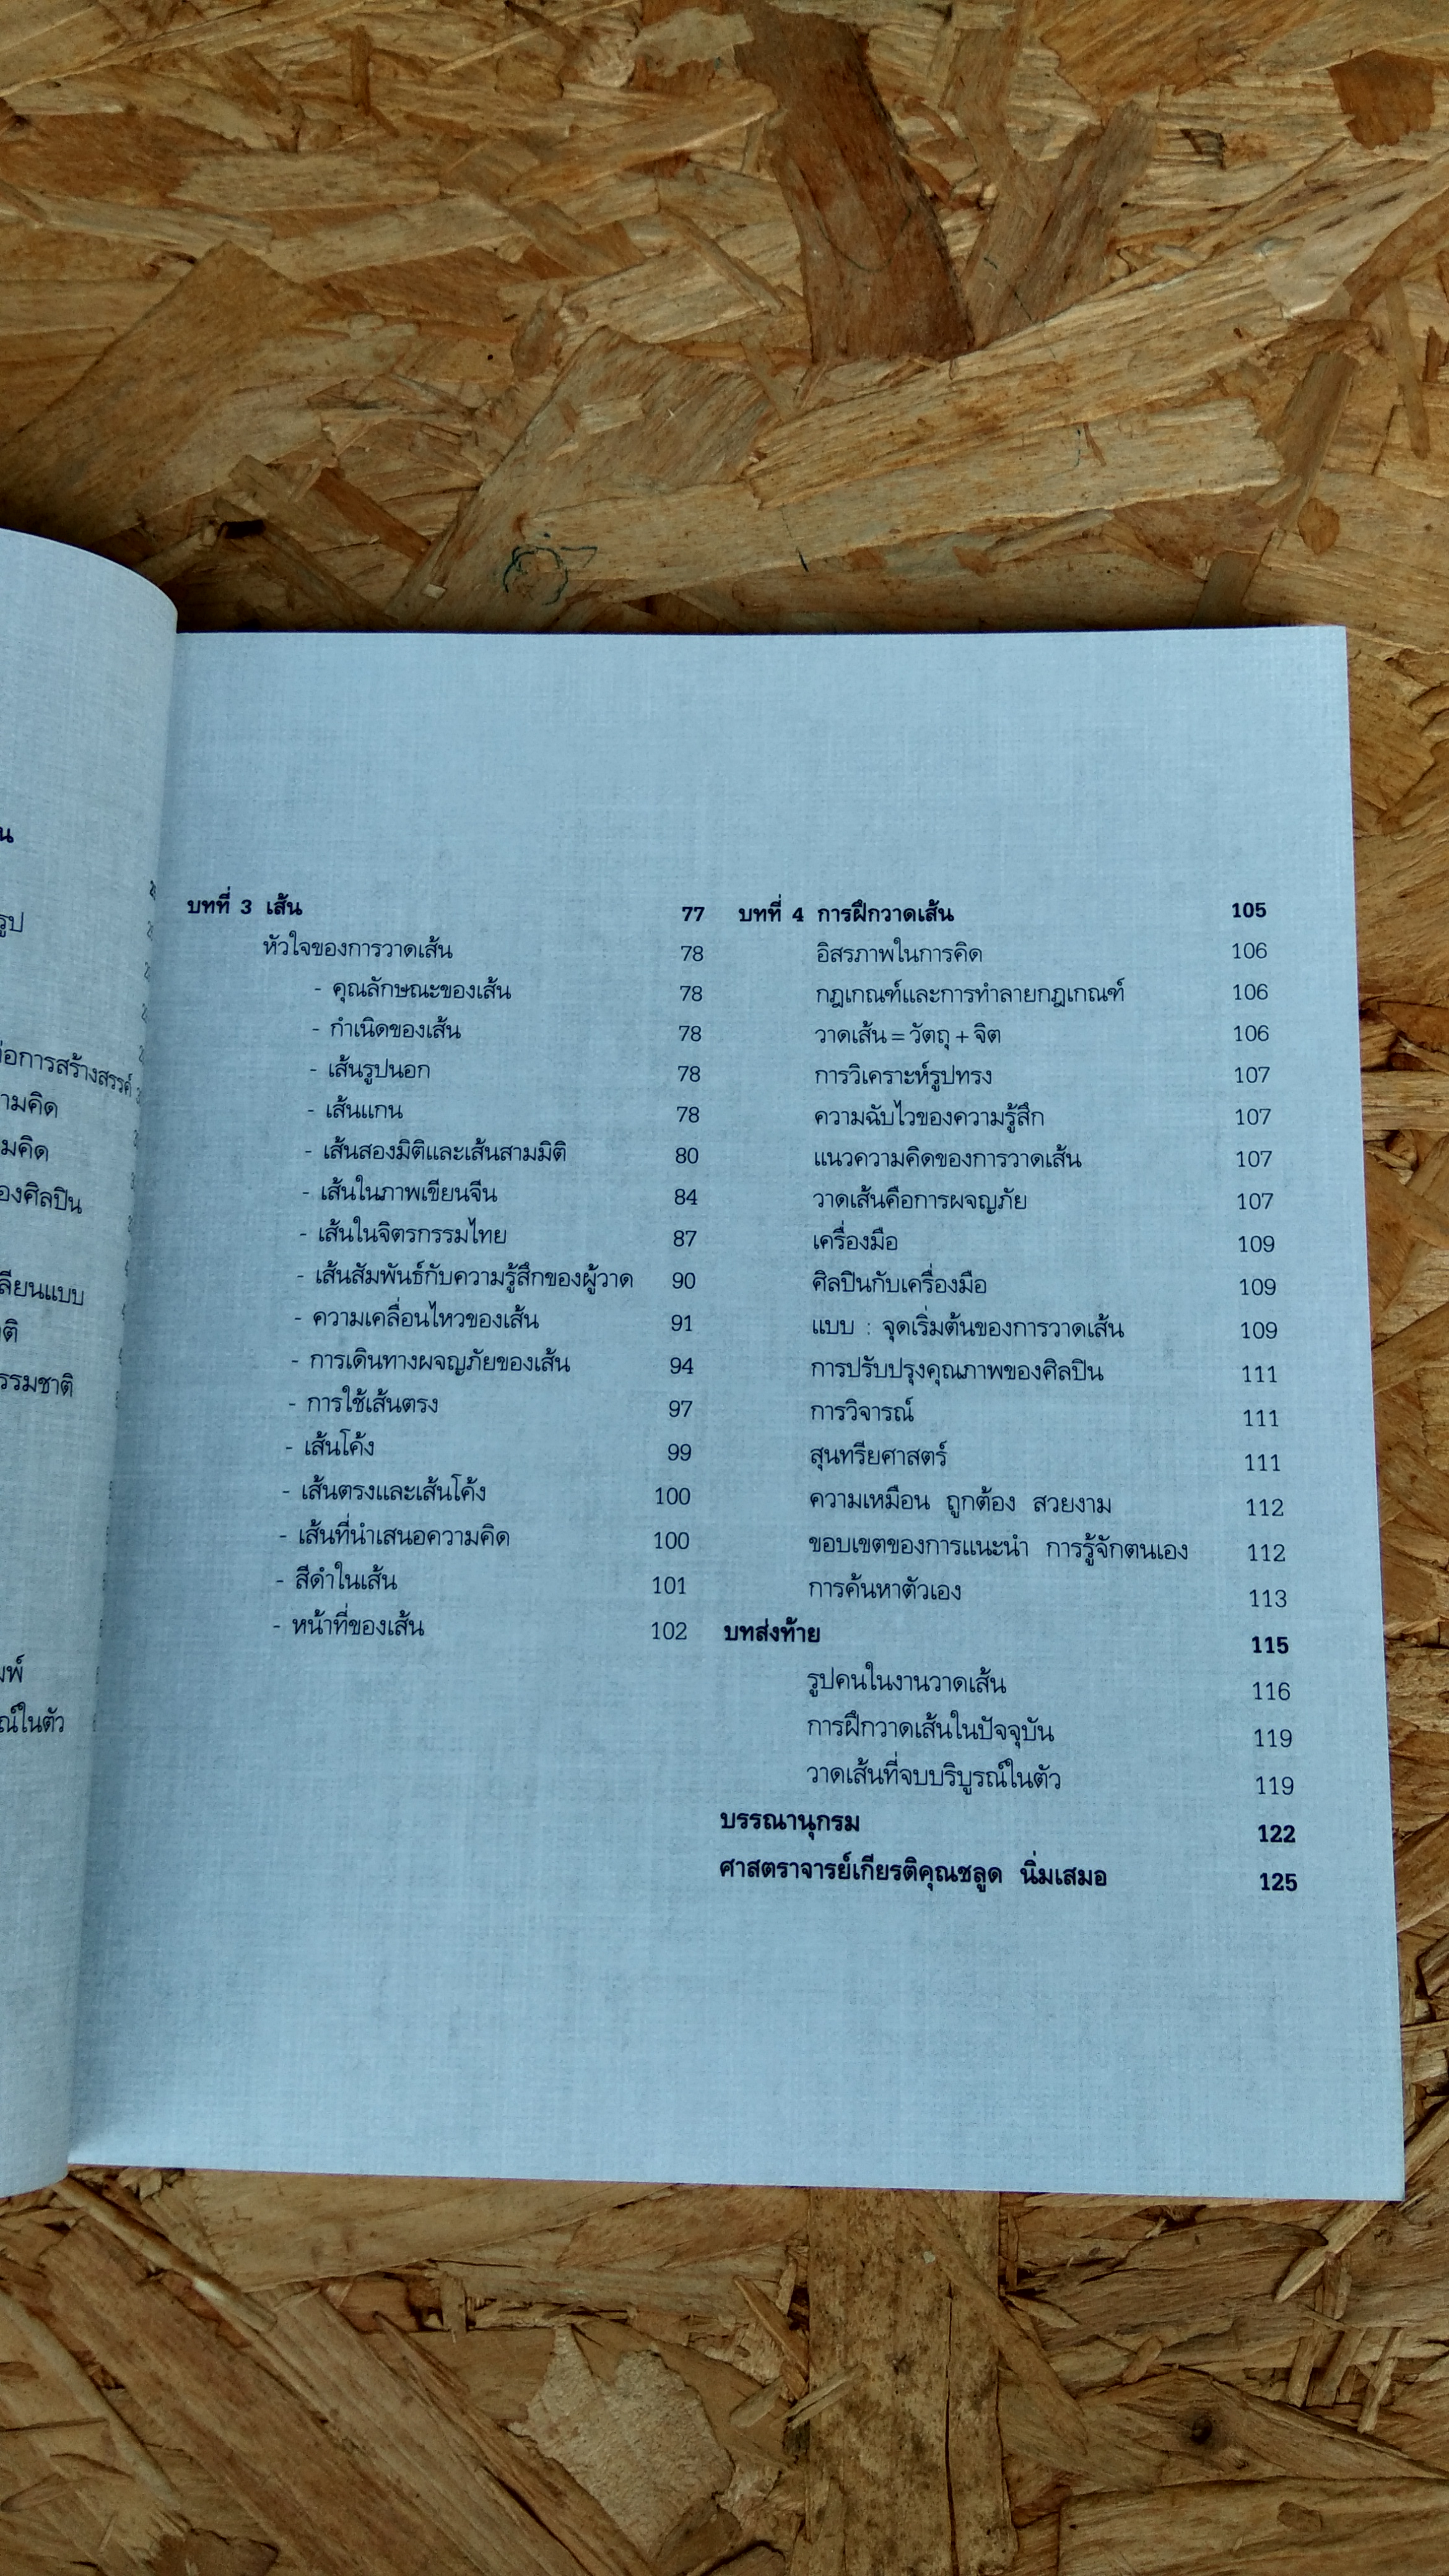 น
รูป
อการสร้างสรรค์
ามคิด
มคิด
องศิลปิน
ลียนแบบ
ติ
รรมชาติ
มพ์
ณ์ในตัว
บทที่ 3 เส้น 77
หัวใจของการวาดเส้น 78
- คุณลักษณะของเส้น 78
- กำเนิดของเส้น 78
- เส้นรูปนอก 78
- เส้นแกน 78
- เส้นสองมิติและเส้นสามมิติ 80
- เส้นในภาพเขียนจีน 84
- เส้นในจิตรกรรมไทย 87
- เส้นสัมพันธ์กับความรู้สึกของผู้วาด 90
- ความเคลื่อนไหวของเส้น 91
- การเดินทางผจญภัยของเส้น 94
- การใช้เส้นตรง 97
- เส้นโค้ง 99
- เส้นตรงและเส้นโค้ง 100
- เส้นที่นำเสนอความคิด 100
- สีดำในเส้น 101
- หน้าที่ของเส้น 102
บทที่ 4 การฝึกวาดเส้น 105
อิสรภาพในการคิด 106
กฎเกณฑ์และการทำลายกฎเกณฑ์ 106
วาดเส้น = วัตถุ + จิต 106
การวิเคราะห์รูปทรง 107
ความฉับไวของความรู้สึก 107
แนวความคิดของการวาดเส้น 107
วาดเส้นคือการผจญภัย 107
เครื่องมือ 109
ศิลปินกับเครื่องมือ 109
แบบ : จุดเริ่มต้นของการวาดเส้น 109
การปรับปรุงคุณภาพของศิลปิน 111
การวิจารณ์ 111
สุนทรียศาสตร์ 111
ความเหมือน ถูกต้อง สวยงาม 112
ขอบเขตของการแนะนำ การรู้จักตนเอง 112
การค้นหาตัวเอง 113
บทส่งท้าย 115
รูปคนในงานวาดเส้น 116
การฝึกวาดเส้นในปัจจุบัน 119
วาดเส้นที่จบบริบูรณ์ในตัว 119
บรรณานุกรม 122
ศาสตราจารย์เกียรติคุณชลูด นิ่มเสมอ 125